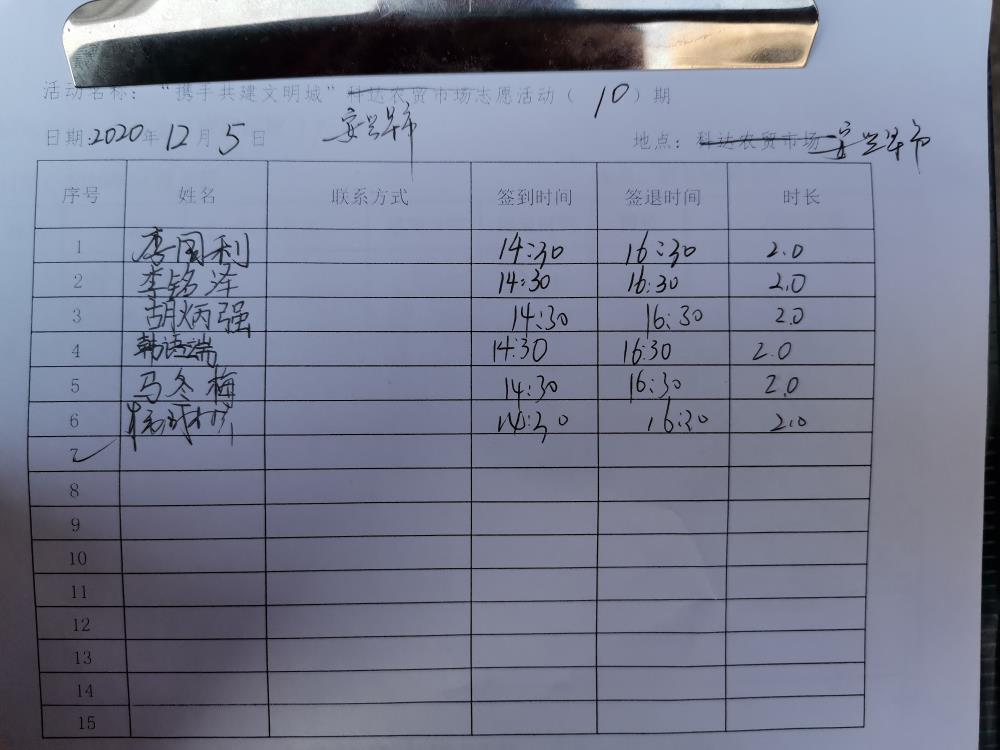 活动名称：“携手共建文明城”科达农贸市场志愿活动（10）期
安兴早市
日期:2020年12月5日 地点：科达农贸市场 安兴早市
序号 姓名 联系方式 签到时间 签退时间 时长
1 李国利 14:30 16:30 2.0
2 李铭泽 14:30 16:30 2.0
3 胡炳强 14:30 16:30 2.0
4 韩语端 14:30 16:30 2.0
5 马冬梅 14:30 16:30 2.0
6 14:30 16:30 2.0
7
8
9
10
11
12
13
14
15